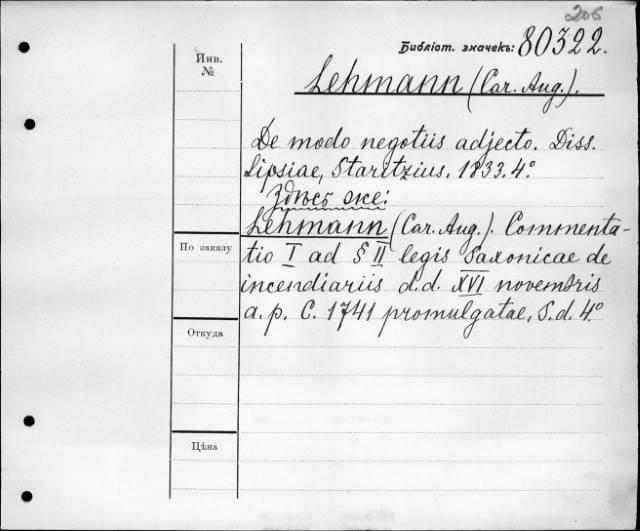 206
Библіот. значекъ: 80322.
Инв.
№
Lehmann (Car. Aug.).
De modo negotiis adjecto. Diss.
Lipsiae, Staritzius. 1833. 4°.
Здѣсь же:
Lehmann (Car. Aug.). Commenta-
tio I ad § II legis Saxonicae de
incendiariis d.d. XVI novembris
a. p. C. 1741 promulgatae, S.d. 4°.
По заказу
Откуда
Цѣна